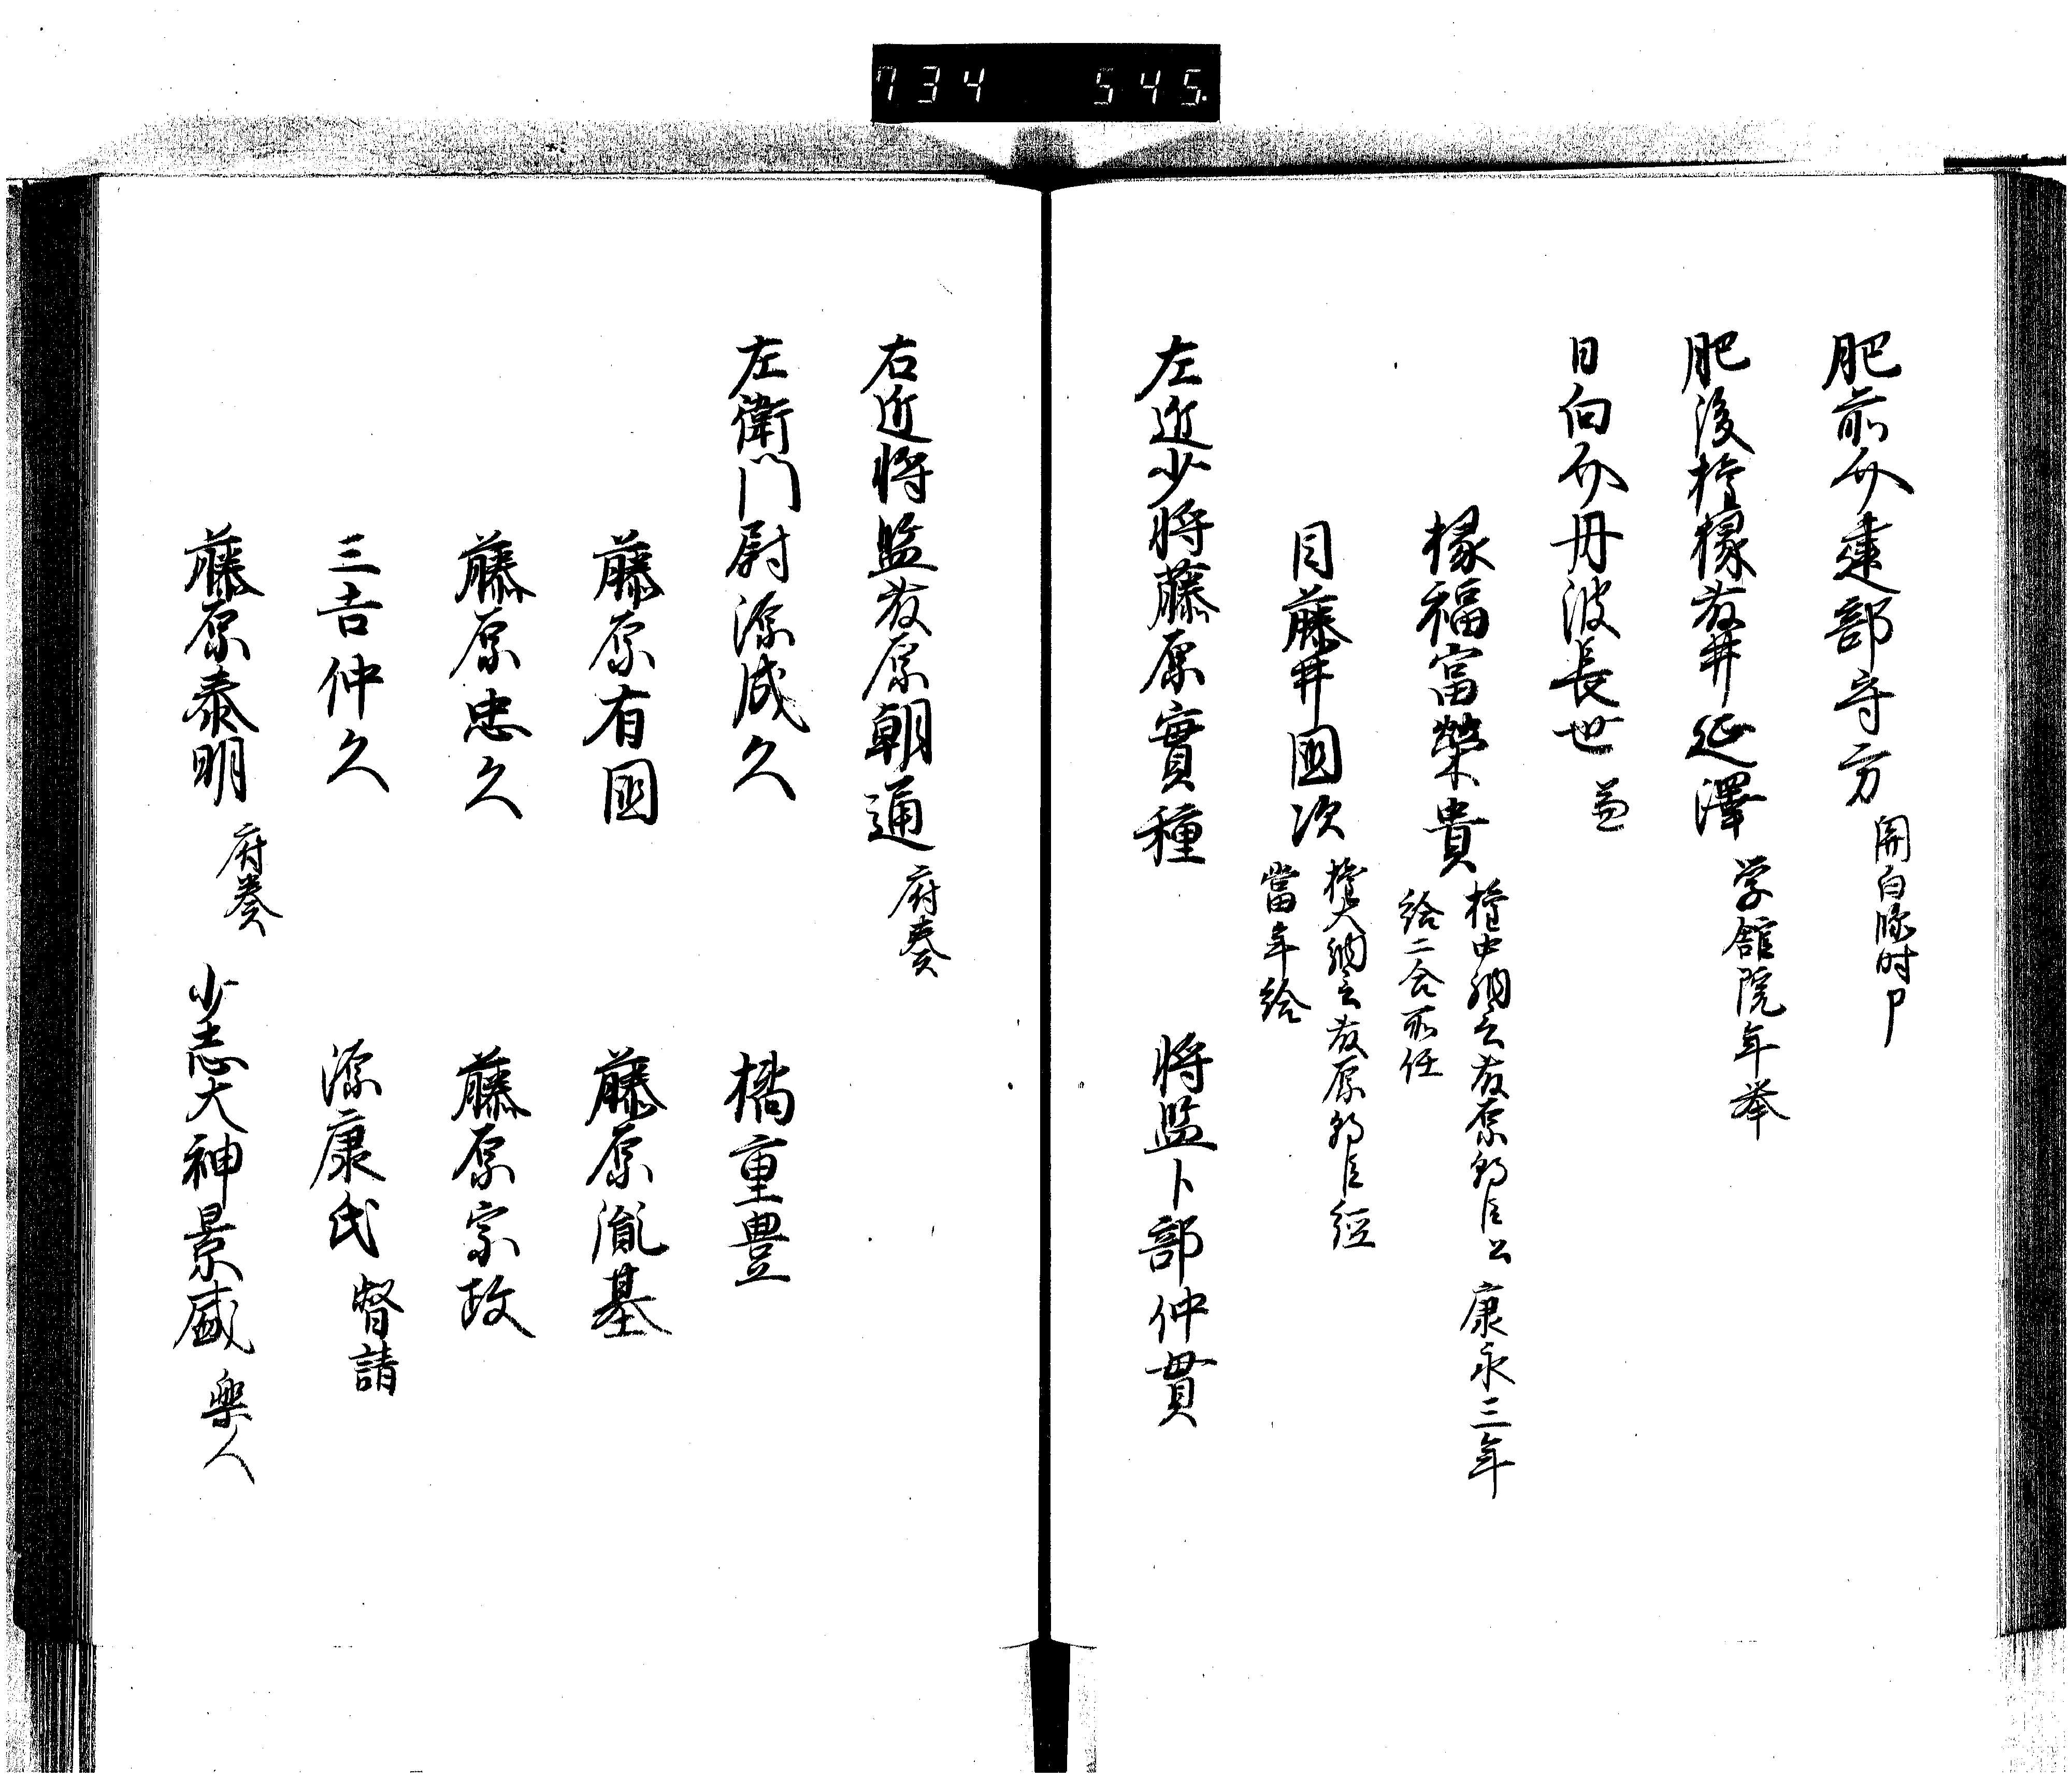 734 545
肥前介建部守方 関白臨时申
肥後権掾藤井延澤 学館院年挙
日向介丹波長世 兼
掾福富榮貴 権中納言藤原朝臣公 康永三年
給二合不任
目藤井國次 権大納言藤原朝臣經
當年給
左近少将藤原實種 将監卜部仲貫
右近将監藤原朝通 府奏
左衛門尉源成久 橘重豊
藤原有國 藤原胤基
藤原忠久 藤原宗政
三吉仲久 源康氏 督請
藤原泰明 府奏 少志大神景盛 樂人